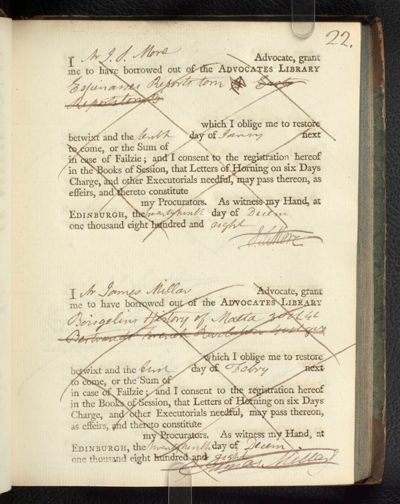 22.
I Mr J. S. More Advocate, grant
me to have borrowed out of the ADVOCATES LIBRARY
Espinasses Reports tom
Reports tom
which I oblige me to restore
betwixt and the tenth day of January next
to come, or the Sum of
in case of Failzie; and I consent to the registration hereof
in the Books of Session, that Letters of Horning on six Days
Charge, and other Executorials needful, may pass thereon, as
effeirs, and thereto constitute
my Procurators. As witness my Hand, at
EDINBURGH, the day of Decem
one thousand eight hundred and eight
J S More
I Mr James Millar Advocate, grant
me to have borrowed out of the ADVOCATES LIBRARY
Boisgelins History of Malta 2 vols 4to
French Revolution
which I oblige me to restore
betwixt and the first day of Febry next
to come, or the Sum of
in case of Failzie; and I consent to the registration hereof
in the Books of Session, that Letters of Horning on six Days
Charge, and other Executorials needful, may pass thereon,
as effeirs, and thereto constitute
my Procurators. As witness my Hand, at
EDINBURGH, the day of Decem
one thousand eight hundred and eight
James Millar